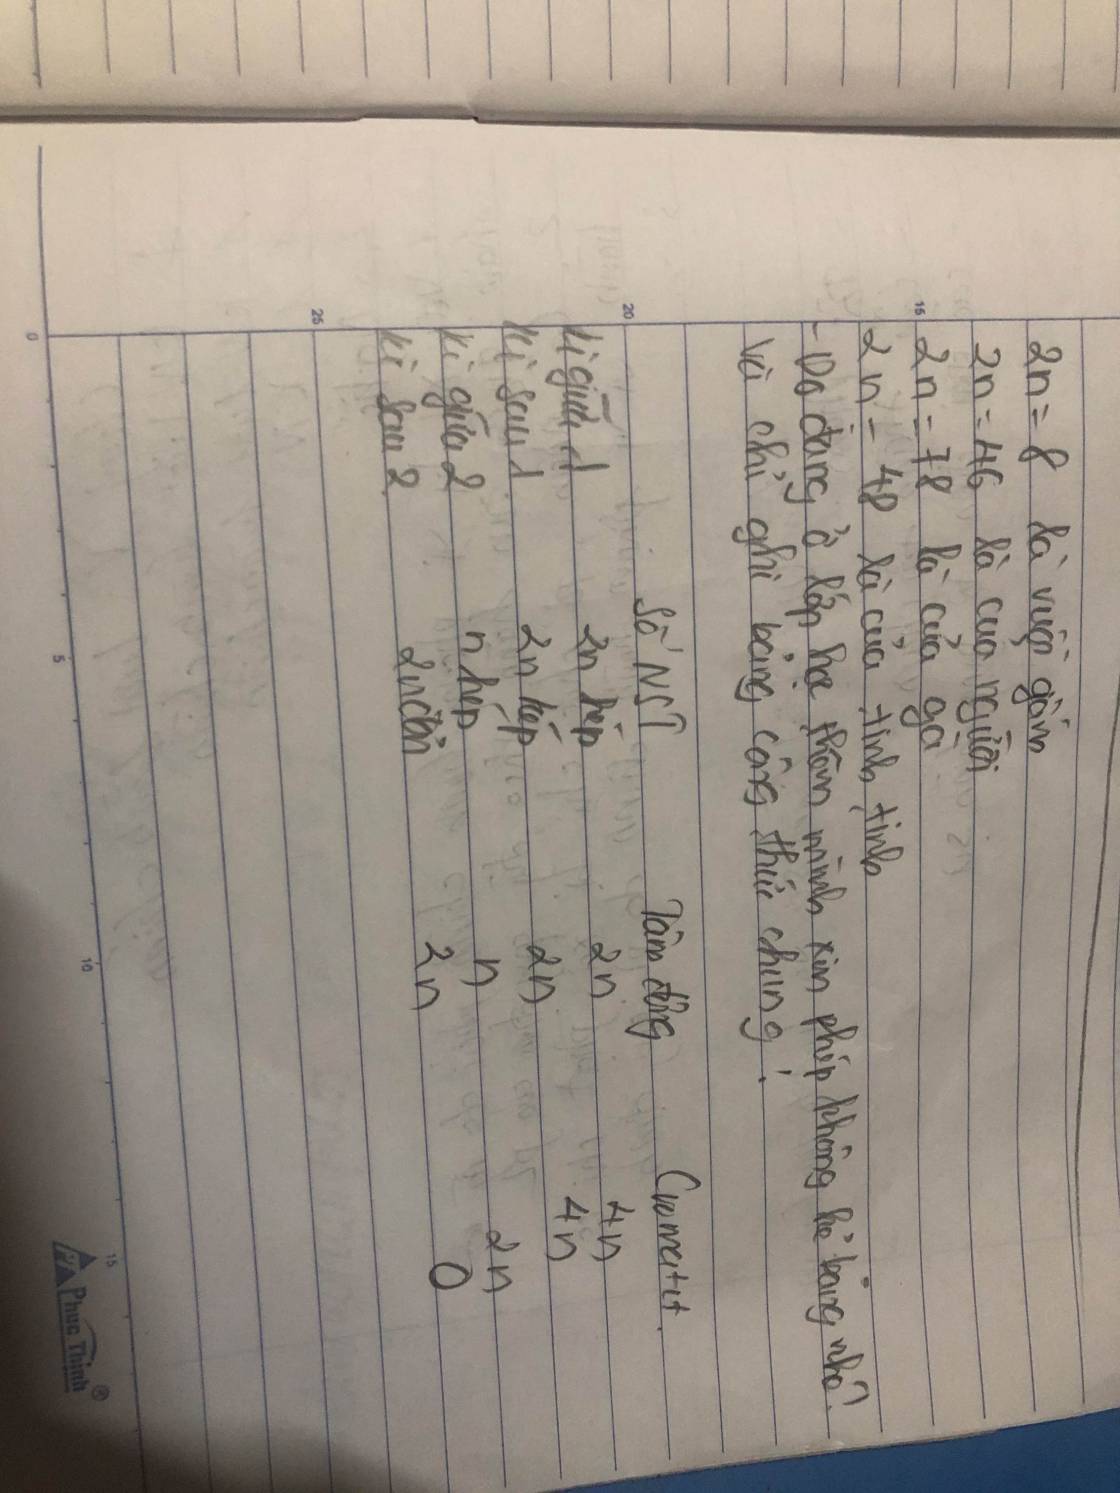 2n = 8 là ruồi giấm
2n = 46 là của người
2n = 78 là của gà
2n = 48 là của tinh tinh
- Do đang ở lớp học thêm mình xin phép không kẻ bảng nhé?
Và chỉ ghi bằng công thức chung!
Số NST Tâm động Cromatit.
kì giữa 1 2n kép 2n 4n
kì sau 1 2n kép 2n 4n
kì giữa 2 n kép n 2n
kì sau 2 2n đơn 2n 0
15
20
25
0 5 10 15
Phuc Thinh ®